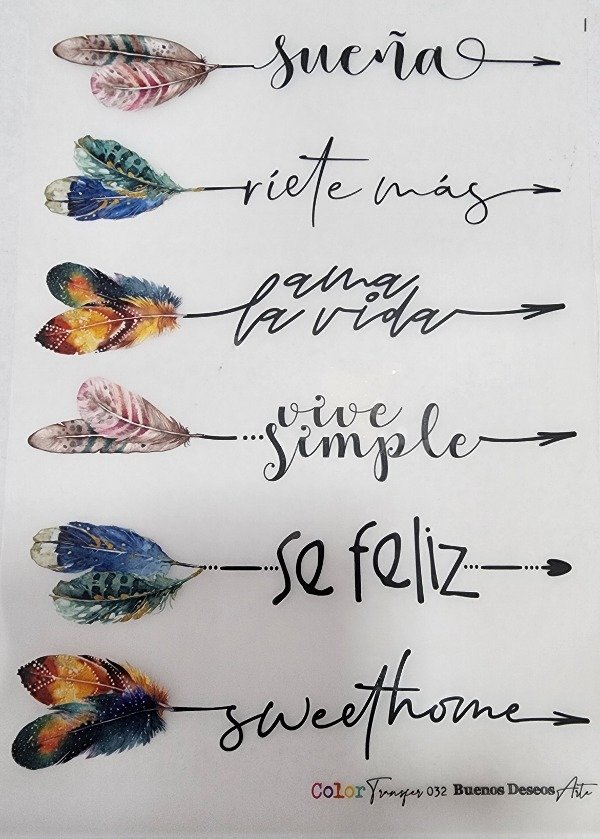 sueña
ríete más
ama
la vida
vive
simple
se feliz
sweet home
Color Transfer 032 Buenos Deseos Arte